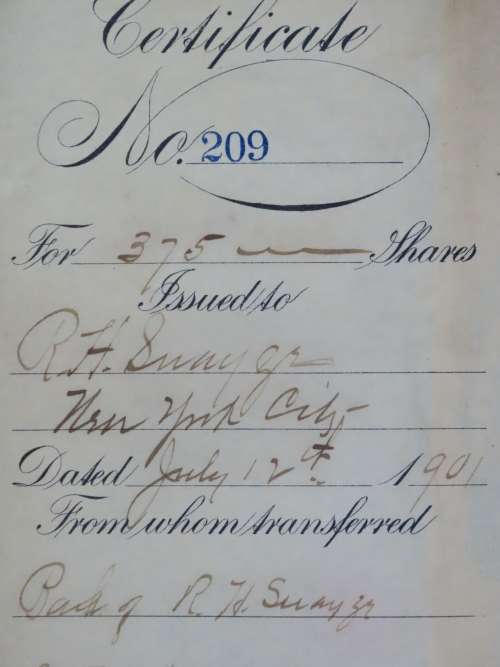 Certificate
No. 209
For 375 Shares
Issued to
R. H.
New York City
Dated July 12th 1901
From whom transferred
R. H.